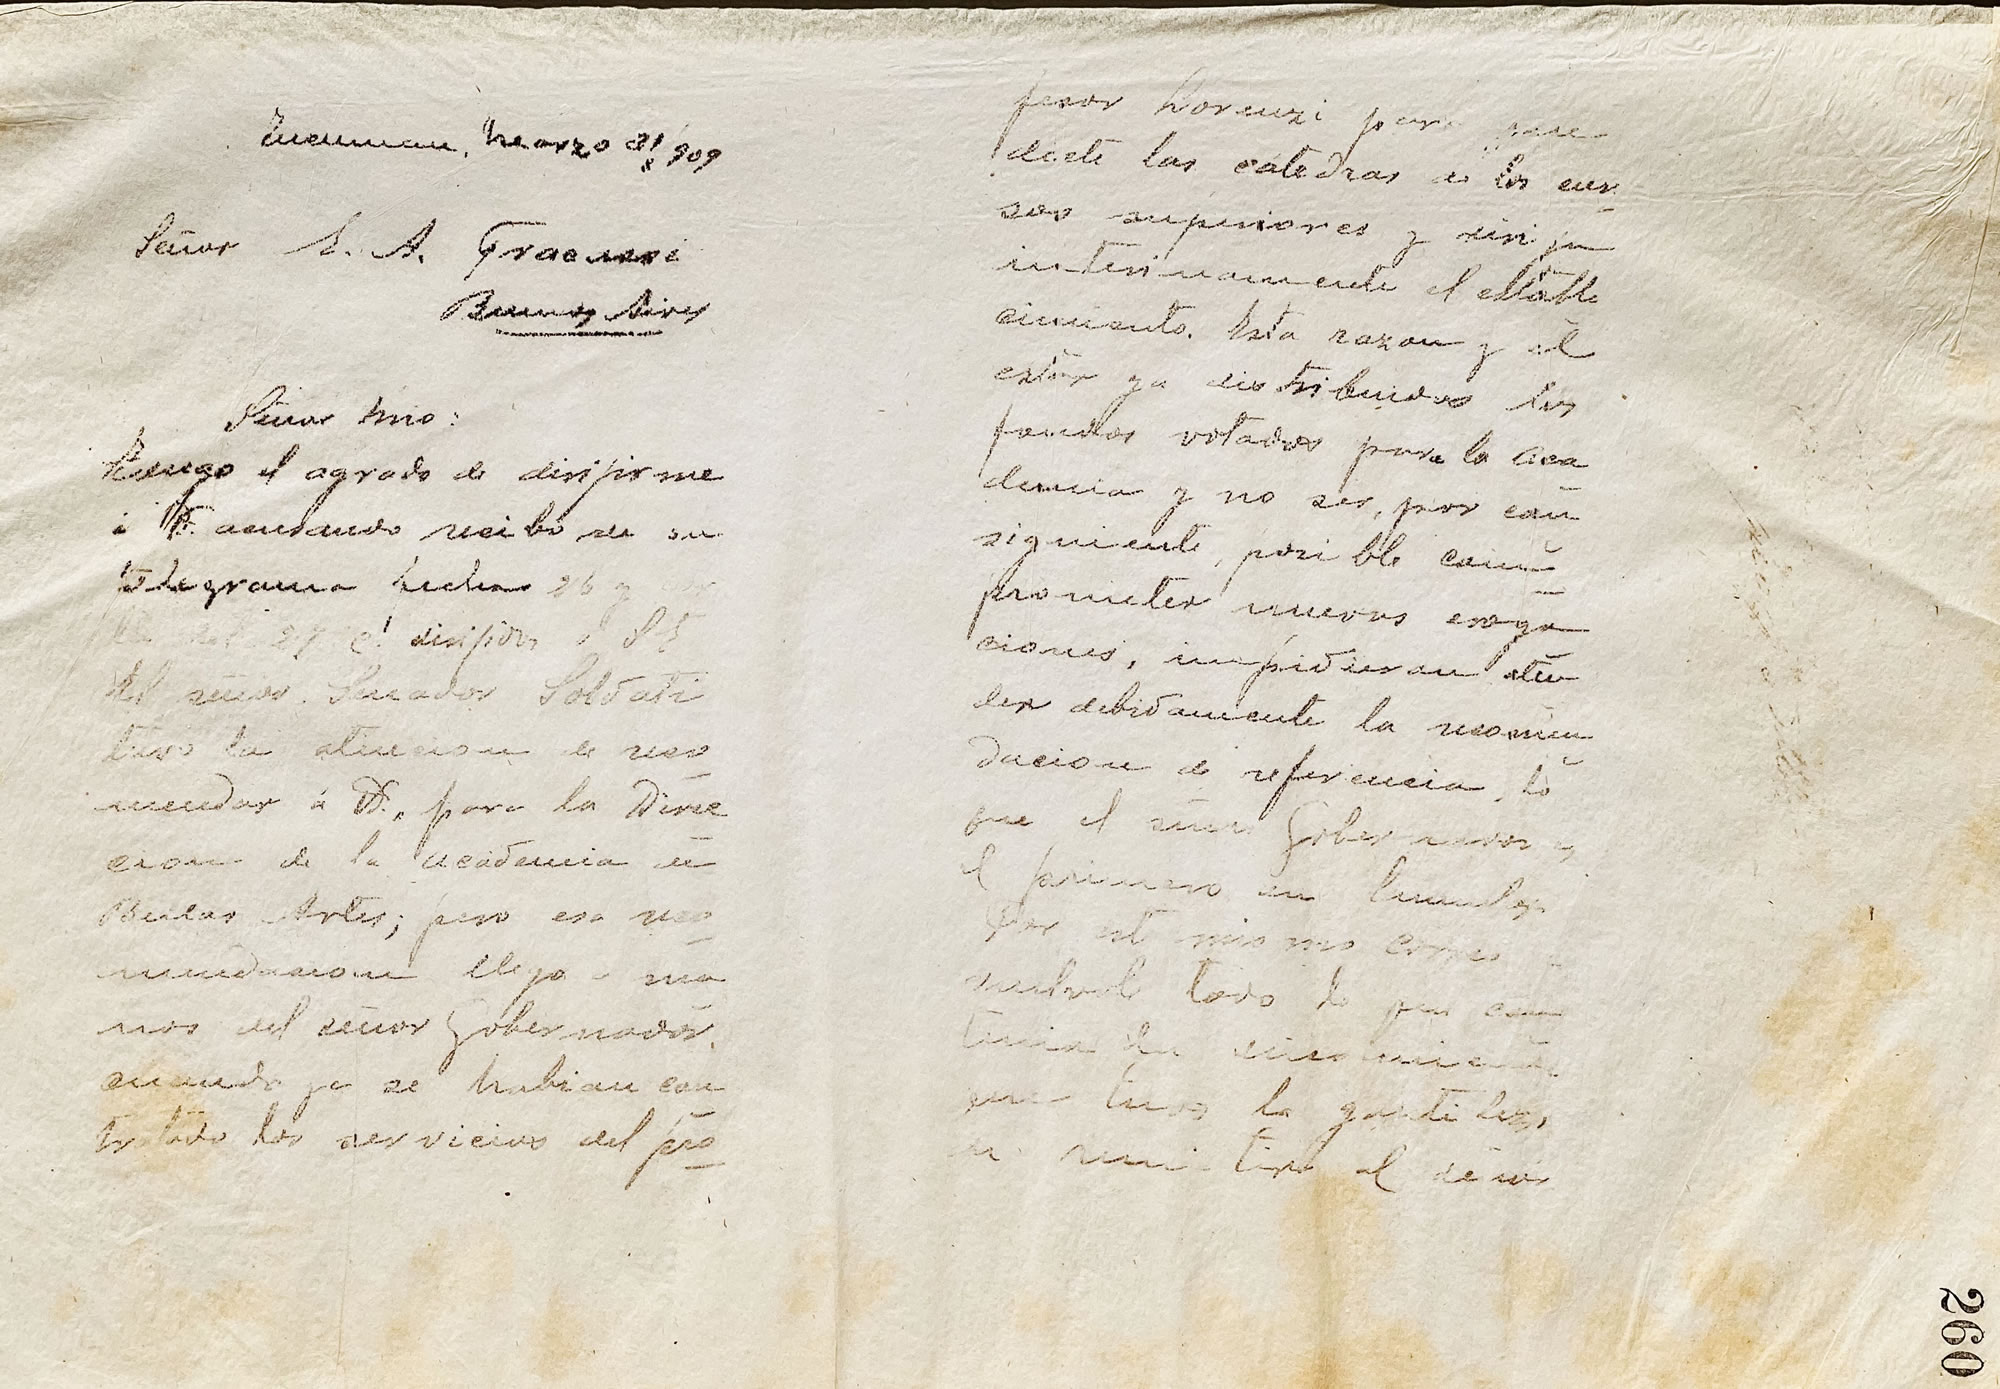 Tucuman, Marzo 31/909
Señor S. A.
Buenos Aires
Señor mio:
Tengo el agrado de dirijirme
á V. acusando recibo de su
telegrama fecha 26 y
del 27 dirijida á S. E.
El señor Senador Soldati
tuvo la atencion de reco
mendar á V., para la Direc
cion de la academia de
Bellas Artes; pero esa reco
mendacion llego a ma
nos del señor Gobernador,
cuando ya se habian con
tratado los servicios del pro
fesor Lorenzi para que
dicte las catedras de los cur
sos superiores y dirija
interinamente el estable
cimiento. Esta razon y el
estar ya distribuidos los
fondos votados para la aca
demia y no ser, por con
siguiente, posible com
prometer nuevas eroga
ciones, impidieron aten
der debidamente la recomen
dacion de referencia, lo
que el señor Gobernador es
el primero en lamentar
Por este mismo correo
todo lo que con
tenia la
que tuvo la gentileza
de remitir al señor
260